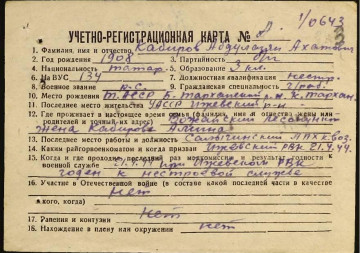 1/0643
УЧЕТНО-РЕГИСТРАЦИОННАЯ КАРТА №
1. Фамилия, имя и отчество Кабиров Абдулахан Ахатович
2. Год рождения 1908 3. Партийность б/п
4. Национальность татар. 5. Образование 3 кл.
6. На ВУС 134 7. Должностная квалификация нестр.
8. Военное звание р-с 9. Гражданская специальность
10. Место рождения ТАССР Б-Тарханский р-н
11. Последнее место жительства УАССР Ижевский р-н
12. Где проживает в настоящее время семья (фамилия, имя и отчество жены или
родителей и домаш. адрес)
жена Кабирова
13. Последнее место работы и должность
14. Каким райгорвоенкоматом и когда призван Ижевский РВК 21.4.44
15. Когда и где проходил раз медкомиссию и результат годности к
военной службе при Ижевском РВК
годен к нестроевой службе
16. Участие в Отечественной войне (в составе какой последней части в качестве
кого, когда) нет
17. Ранения и контузии нет
18. Нахождение в плену или окружении нет